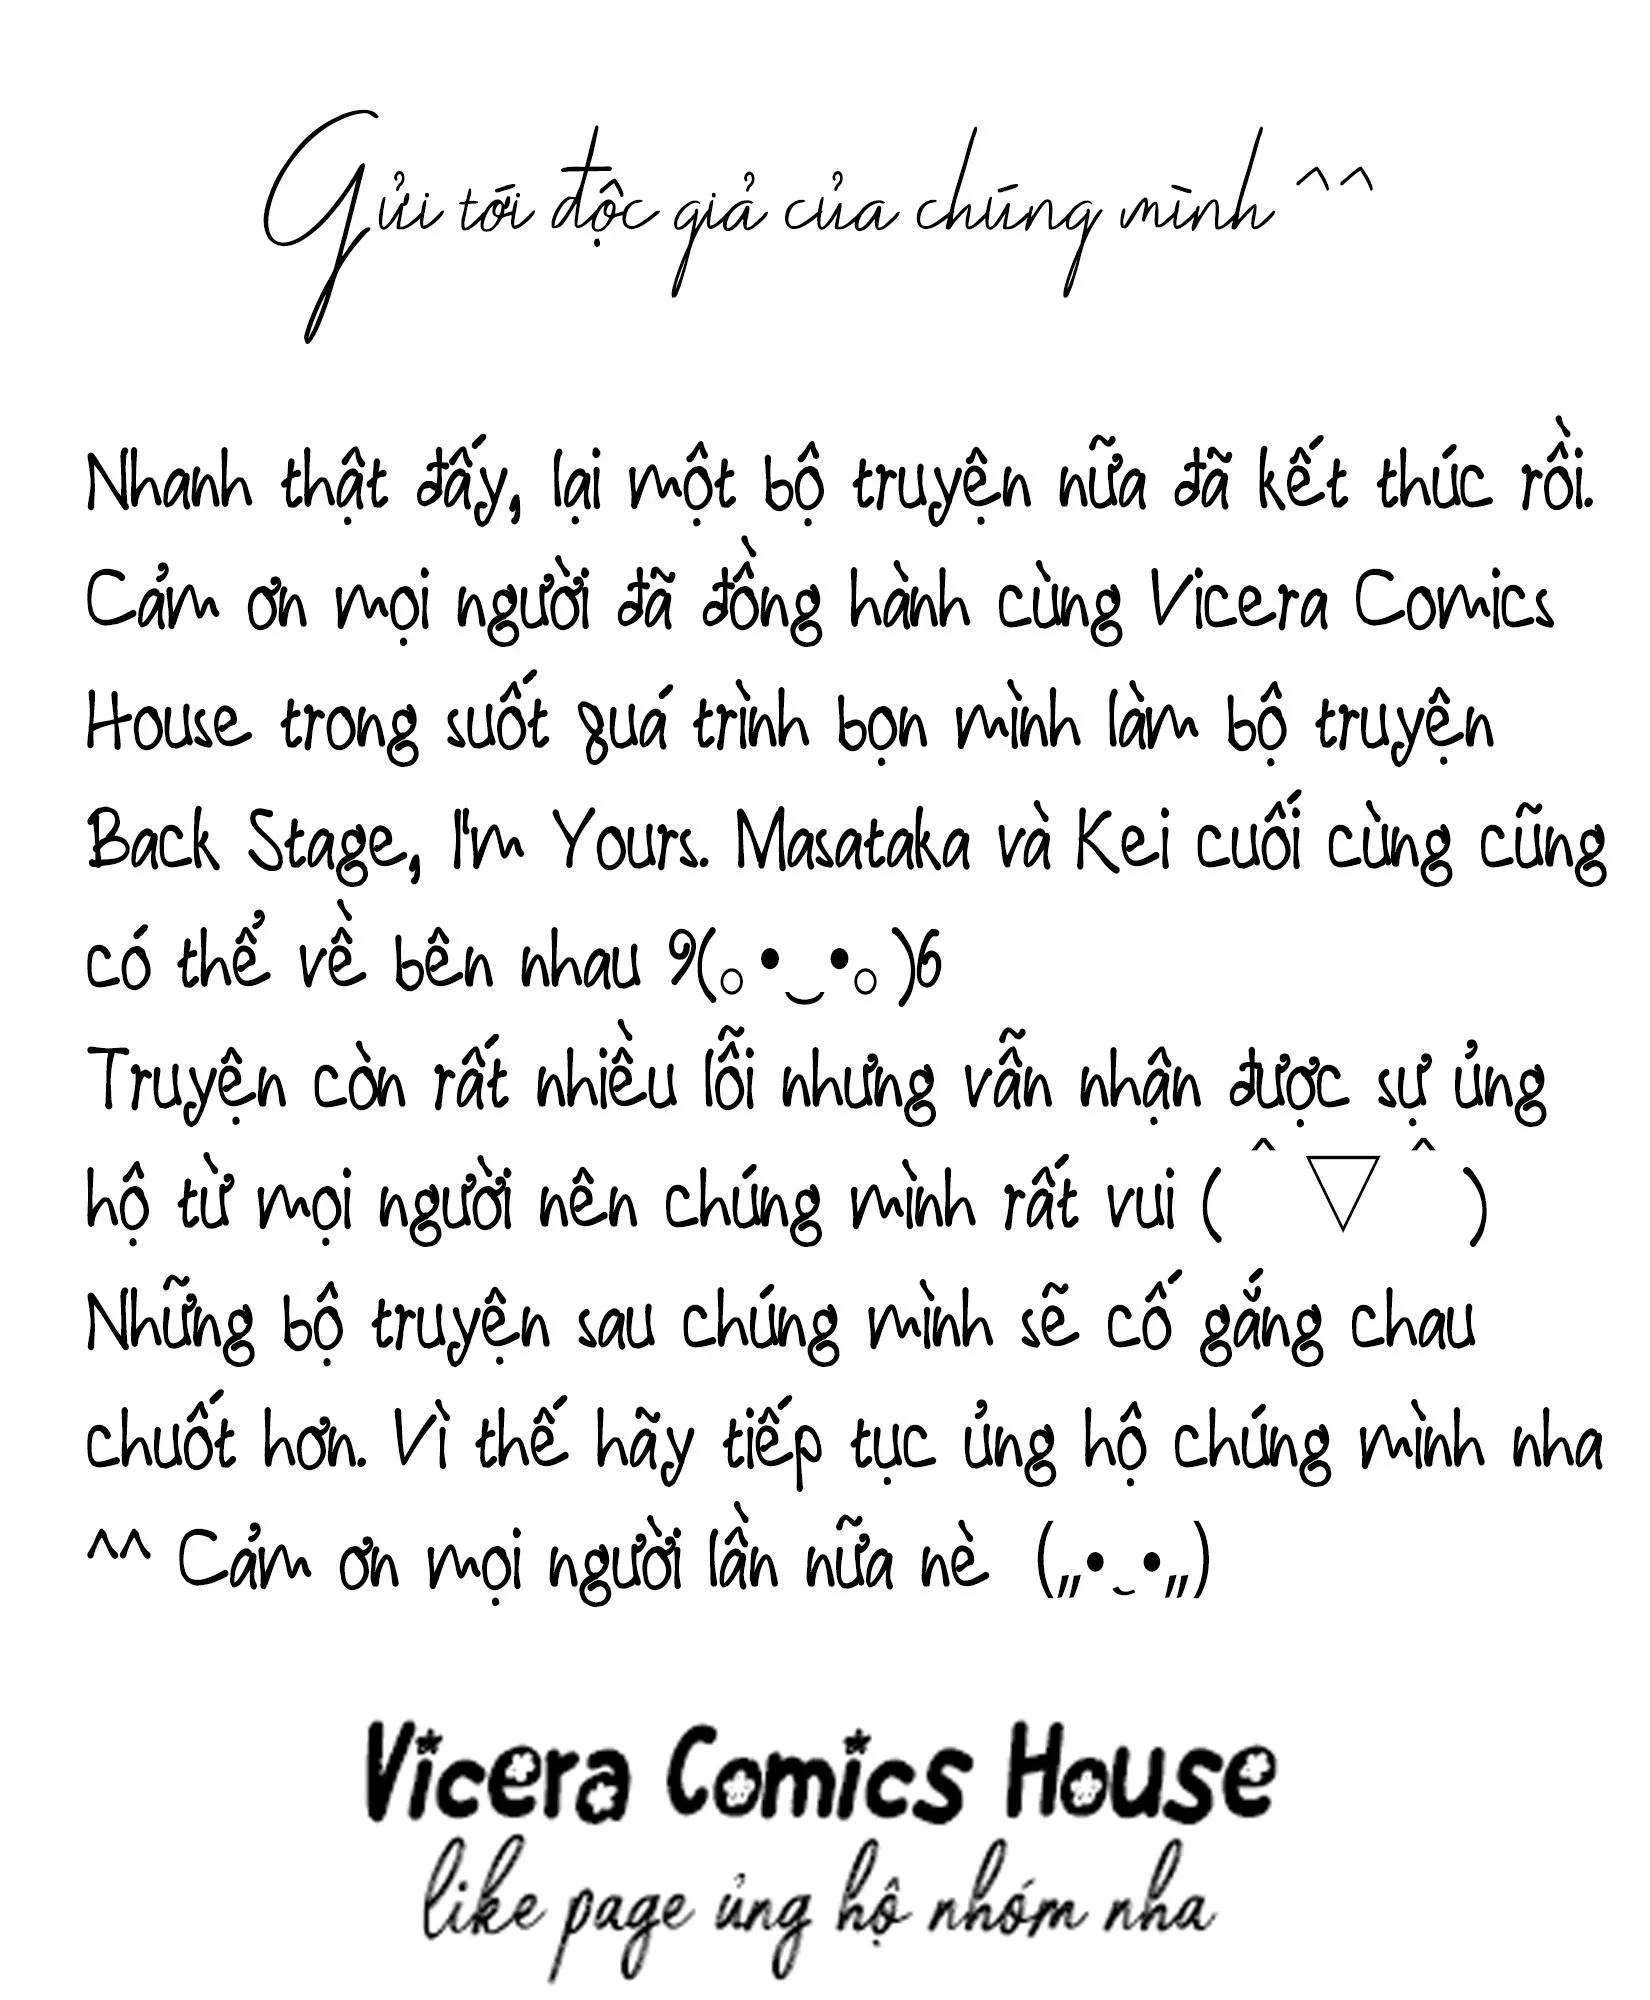 Gửi tới độc giả của chúng mình ^^
Nhanh thật đấy, lại một bộ truyện nữa đã kết thúc rồi.
Cảm ơn mọi người đã đồng hành cùng Vicera Comics
House trong suốt quá trình bọn mình làm bộ truyện
Back Stage, I'm Yours. Masataka và Kei cuối cùng cũng
có thể về bên nhau 9(｡•‿•｡)6
Truyện còn rất nhiều lỗi nhưng vẫn nhận được sự ủng
hộ từ mọi người nên chúng mình rất vui ( ^▽^ )
Những bộ truyện sau chúng mình sẽ cố gắng chau
chuốt hơn. Vì thế hãy tiếp tục ủng hộ chúng mình nha
^^ Cảm ơn mọi người lần nữa nè („•‿•„)
Vicera Comics House
like page ủng hộ nhóm nha